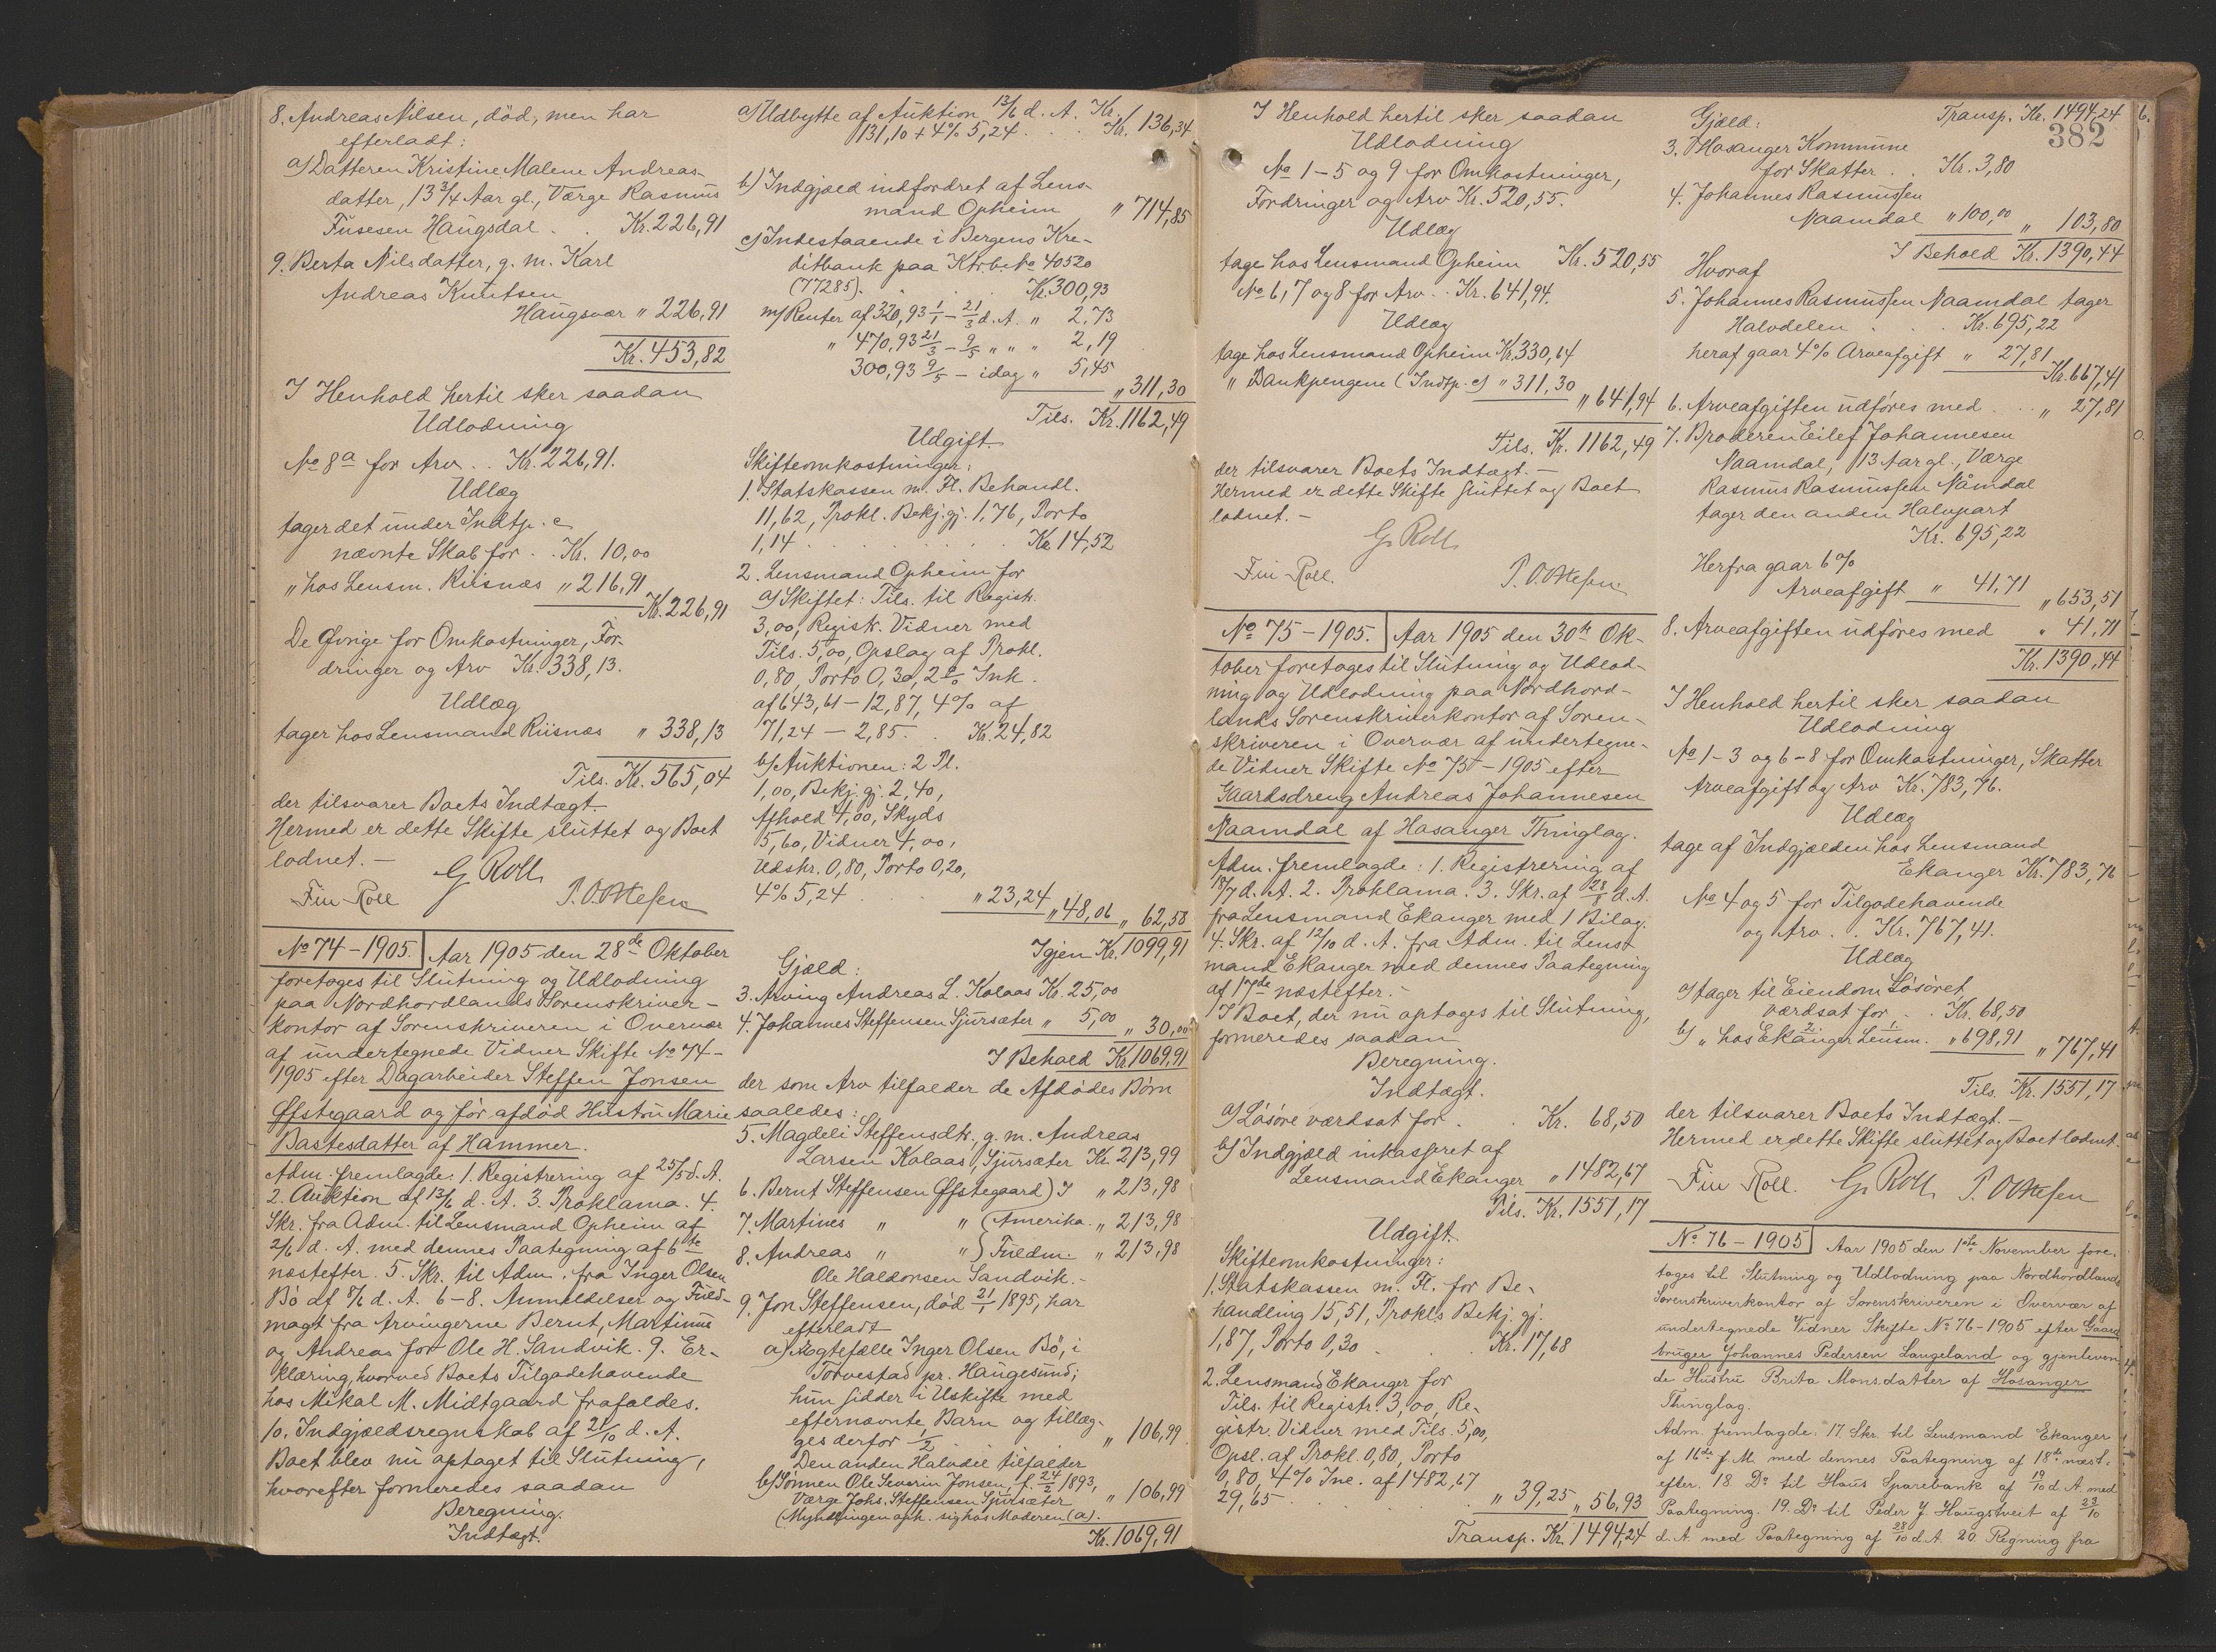 8. Andreas Nilsen, død, men har
efterladt:
a) Datteren Kristine Malene Andreas-
datter, 13 3/4 Aar gl., Værge Rasmus
Fusesen Haugsdal . . Kr. 226,91
9. Berta Nilsdatter, g. m. Karl
Andreas Knutsen
Haugsvær " 226,91
Kr. 453,82
I Henhold hertil sker saadan
Udlodning
No 8a for Arv . . Kr. 226,91.
Udlæg
tager det under Indtp. c
nævnte Skab for . . Kr. 10,00
" hos Lensm. Riisnæs " 216,91
Kr. 226,91
De Øvrige for Omkostninger, For-
dringer og Arv Kr. 338,13.
Udlæg
tager hos Lensmand Riisnæs " 338,13
Tils. Kr. 565,04
der tilsvarer Boets Indtægt.
Hermed er dette Skifte sluttet og Boet
lodnet. —
G Roll
Fin Roll P. O. Ottesen
No 74 – 1905. Aar 1905 den 28de Oktober
foretoges til Slutning og Udlodning
paa Nordhordlands Sorenskriver-
kontor af Sorenskriveren i Overvær
af undertegnede Vidner Skifte No 74–
1905 efter Dagarbeider Steffen Jonsen
Øfstegaard og før afdød Hustru Marie
Bastesdatter af Hammer.
Adm. fremlagde: 1. Registrering af 25/5 d. A.
2. Auktion af 13/6 d. A. 3. Proklama. 4.
Skr. fra Adm. til Lensmand Opheim af
2/6 d. A. med dennes Paategning af 6te
næstefter. 5. Skr. til Adm. fra Inger Olsen
Bö af 8/6 d. A. 6–8. Anmeldelser og Fuld-
magt fra Arvingerne Bernt, Martinus
og Andreas for Ole H. Sandvik. 9. Er-
klæring, hvorved Boets Tilgodehavende
hos Mikal M. Midtgaard frafaldes.
10. Indgjældsregnskab af 21/10 d. A.
Boet blev nu optaget til Slutning,
hvorefter formeredes saadan
Beregning.
Indtægt.
a) Udbytte af Auktion 13/6 d. A. Kr.
131,10 + 4% 5,24 . . . Kr. 136,34
b) Indgjæld indfordret af Lens-
mand Opheim " 714,85
c) Indestaaende i Bergens Kre-
ditbank paa Ktrb. No 40520
(77285) . . . Kr. 300,93
m/ Renter af 320,93 1/1 – 21/3 d. A. " 2,73
" 470,93 21/3 – 9/5 " " " 2,19
300,93 9/5 – idag " 5,45
" 311,30
Tils. Kr. 1162,49
Udgift.
Skifteomkostninger:
1. Statskassen m. Fl. Behandl.
11,62, Prokl. Bekj.gj. 1,76, Porto
1,14 . . . Kr. 14,52
2. Lensmand Opheim for
a) Skiftet: Tils. til Registr.
3,00, Registr. Vidner med
Tils. 5,00, Opslag af Prokl.
0,80, Porto 0,30, 2% Ink.
af 643,61 – 12,87, 4% af
71,24 – 2,85. . Kr. 24,82
b) Auktionen: 2 Pl.
1,00, Bekj. gj. 2,40,
Afhold 4,00, Skyds
5,60, Vidner 4,00,
Udskr. 0,80, Porto 0,20,
4% 5,24 . . . " 23,24 " 48,06 " 62,58
Igjen Kr. 1099,91
Gjæld:
3. Arving Andreas L. Kalaas Kr. 25,00
4. Johannes Steffensen Sjursæter " 5,00 " 30,00
I Behold Kr. 1069,91
der som Arv tilfalder de Afdødes Børn
saaledes:
5. Magdeli Steffensdtr., g. m. Andreas
Larsen Kalaas, Sjursæter Kr. 213,99
6. Bernt Steffensen Øfstegaard) I " 213,98
7. Martines " " Amerika. " 213,98
8. Andreas " " Fuldm. " 213,98
Ole Haldorsen Sandvik. —
9. Jon Steffensen, død 21/1 1895, har
efterladt
a) Ægtefælle Inger Olsen Bö, i
Torvestad pr. Haugesund;
hun sidder i Uskifte med
efternævnte Barn og tillæg-
ges derfor 1/2 . " 106,99
Den anden Halvdel tilfalder
b) Sönnen Ole Severin Jonsen, f. 24/2 1893,
Værge Johs. Steffensen Sjursæter " 106,99
(Myndlingen oph. sig hos Moderen (a).
Kr. 1069,91
I Henhold hertil sker saadan
Udlodning
No 1 – 5 og 9 for Omkostninger,
Fordringer og Arv Kr. 520,55.
Udlæg
tage hos Lensmand Opheim Kr. 520,55
No 6, 7 og 8 for Arv . . Kr. 641,94.
Udlæg
tage hos Lensmand Opheim Kr. 330,64
" Bankpengene (Indtp. c) " 311,30
" 641,94
Tils. Kr. 1162,49
der tilsvarer Boets Indtægt. —
Hermed er dette Skifte sluttet og Boet
lodnet. —
G. Roll
Fin Roll. P. O. Ottesen
No 75 – 1905. Aar 1905 den 30te Ok-
tober foretoges til Slutning og Udlod-
ning og Udlodning paa Nordhord-
lands Sorenskriverkontor af Soren-
skriveren i Overvær af undertegne-
de Vidner Skifte No 75 – 1905 efter
Gaardsdreng Andreas Johannesen
Naamdal af Hosanger Thinglag.
Adm. fremlagde: 1. Registrering af
18/7 d. A. 2. Proklama. 3. Skr. af 28/8 d. A.
fra Lensmand Ekanger med 1 Bilag.
4. Skr. af 12/10 d. A. fra Adm. til Lens-
mand Ekanger med dennes Paategning
af 17de næstefter. —
I Boet, der nu optoges til Slutning,
formeredes saadan
Beregning.
Indtægt.
a) Løsøre værdsat for . . Kr. 68,50
b) Indgjæld inkasseret af
Lensmand Ekanger " 1482,67
Tils. Kr. 1551,17
Udgift.
Skifteomkostninger:
1. Statskassen m. Fl. for Be-
handling 15,51, Prokls Bekj. gj.
1,87, Porto 0,30 . . . Kr. 17,68
2. Lensmand Ekanger for
Tils. til Registr. 3,00, Re-
gistr. Vidner med Tils. 5,00,
Opsl. af Prokl. 0,80, Porto
0,80, 4% Inc. af 1482,67
29,65 . . . " 39,25 " 56,93
Transp. Kr. 1494,24
Transp. Kr. 1494,24
382
Gjæld:
3. Hosanger Kommune
for Skatter . . Kr. 3,80
4. Johannes Rasmussen
Naamdal " 100,00 " 103,80
I Behold Kr. 1390,44
Hvoraf
5. Johannes Rasmussen Naamdal tager
Halvdelen . . . Kr. 695,22
heraf gaar 4% Arveafgift " 27,81
Kr. 667,41
6. Arveafgiften udføres med . . " 27,81
7. Broderen Eilef Johannesen
Naamdal, 13 Aar gl., Værge
Rasmus Rasmussen Nåmdal
tager den anden Halvpart
Kr. 695,22
Herfra gaar 6%
Arveafgift " 41,71
" 653,51
8. Arveafgiften udføres med " 41,71
Kr. 1390,44
I Henhold hertil sker saadan
Udlodning
No 1 – 3 og 6 – 8 for Omkostninger, Skatter
Arveafgift og Arv Kr. 783,76.
Udlæg
tage af Indgjælden hos Lensmand
Ekanger Kr. 783,76
No 4 og 5 for Tilgodehavende
og Arv . . Kr. 767,41.
Udlæg
a) tager til Eiendom Løsøret
værdsat for . . Kr. 68,50
b) " hos Ekanger Lensm. " 698,91
" 767,41
Tils. Kr. 1551,17
der tilsvarer Boets Indtægt. —
Hermed er dette Skifte sluttet og Boet lodnet.
Fin Roll. G. Roll P. O. Ottesen
No 76 – 1905 Aar 1905 den 1ste November fore-
toges til Slutning og Udlodning paa Nordhordlands
Sorenskriverkontor af Sorenskriveren i Overvær af
undertegnede Vidner Skifte No 76 – 1905 efter Gaard-
bruger Johannes Pedersen Langeland og gjenleven-
de Hustru Brita Monsdatter af Hosanger
Thinglag.
Adm. fremlagde: 17. Skr. til Lensmand Ekanger
af 16de f. M. med dennes Paategning af 18de næst-
efter. 18. Do til Haus Sparebank af 19/10 d. A. med
Paategning. 19. Do til Peder J. Haugstveit af 23/10
d. A. med Paategning af 28/10 d. A. 20. Regning fra